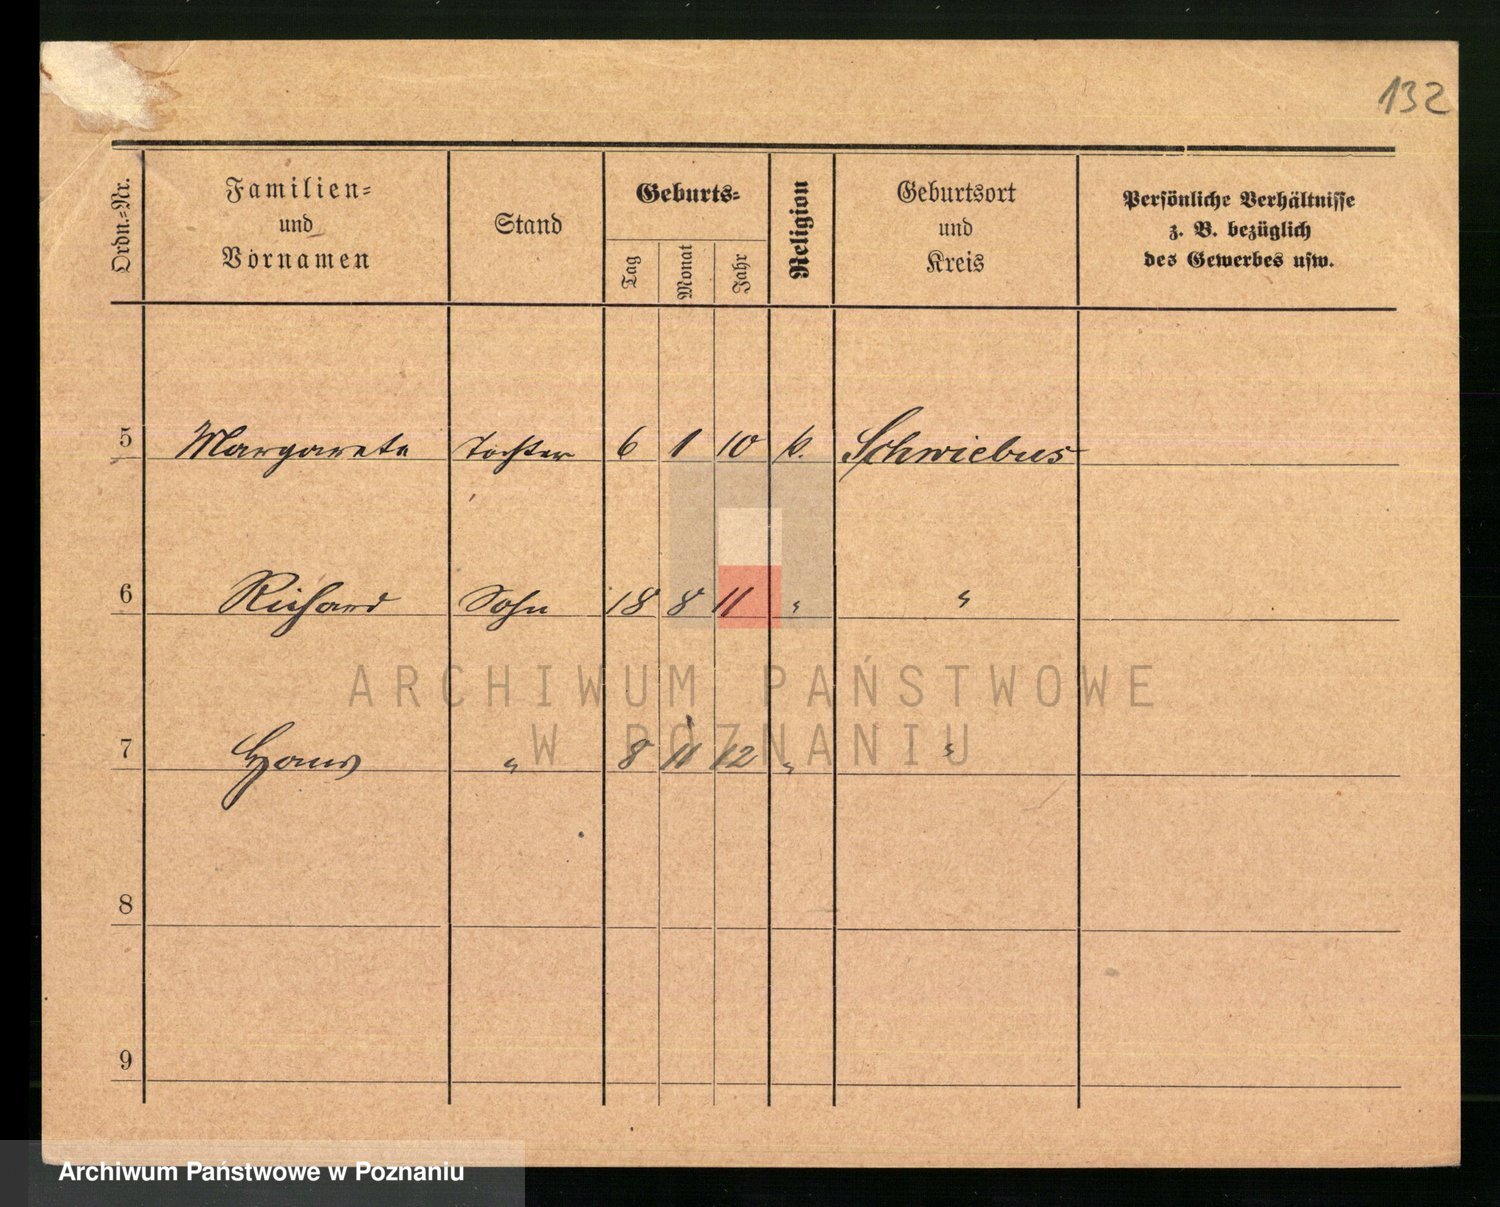 132
Ordn.-Nr.
Familien-
und
Vornamen
Stand
Geburts-
Tag
Monat
Jahr
Religion
Geburtsort
und
Kreis
Persönliche Verhältnisse
z. B. bezüglich
des Gewerbes usw.
5 Margarete Tochter 6 1 10 k. Schwiebus
6 Richard Sohn 18 8 11 " "
ARCHIWUM PAŃSTWOWE
W POZNANIU
7 Hans " 8 11 12 " "
8
9
Archiwum Państwowe w Poznaniu